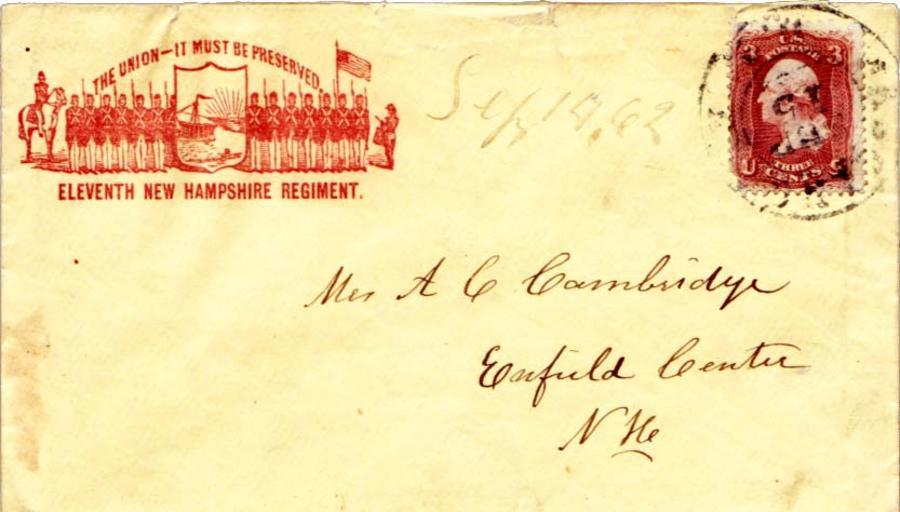 THE UNION—IT MUST BE PRESERVED.
ELEVENTH NEW HAMPSHIRE REGIMENT.
Sep 14, 62
3 U.S. POSTAGE 3
U THREE CENTS S
Mrs A C Cambridge
Enfield Center
N He